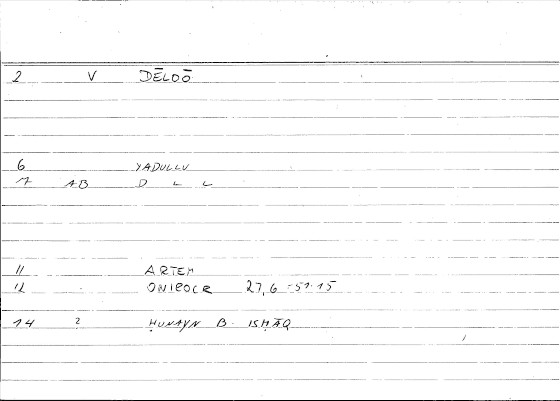 2 V DĒLOŌ
6 YADULLU
7 AB D L L
11 ARTEM
12 ONIROCR 27,6 - 51.15
14 2 ḤUNAYN B. ISḤĀQ